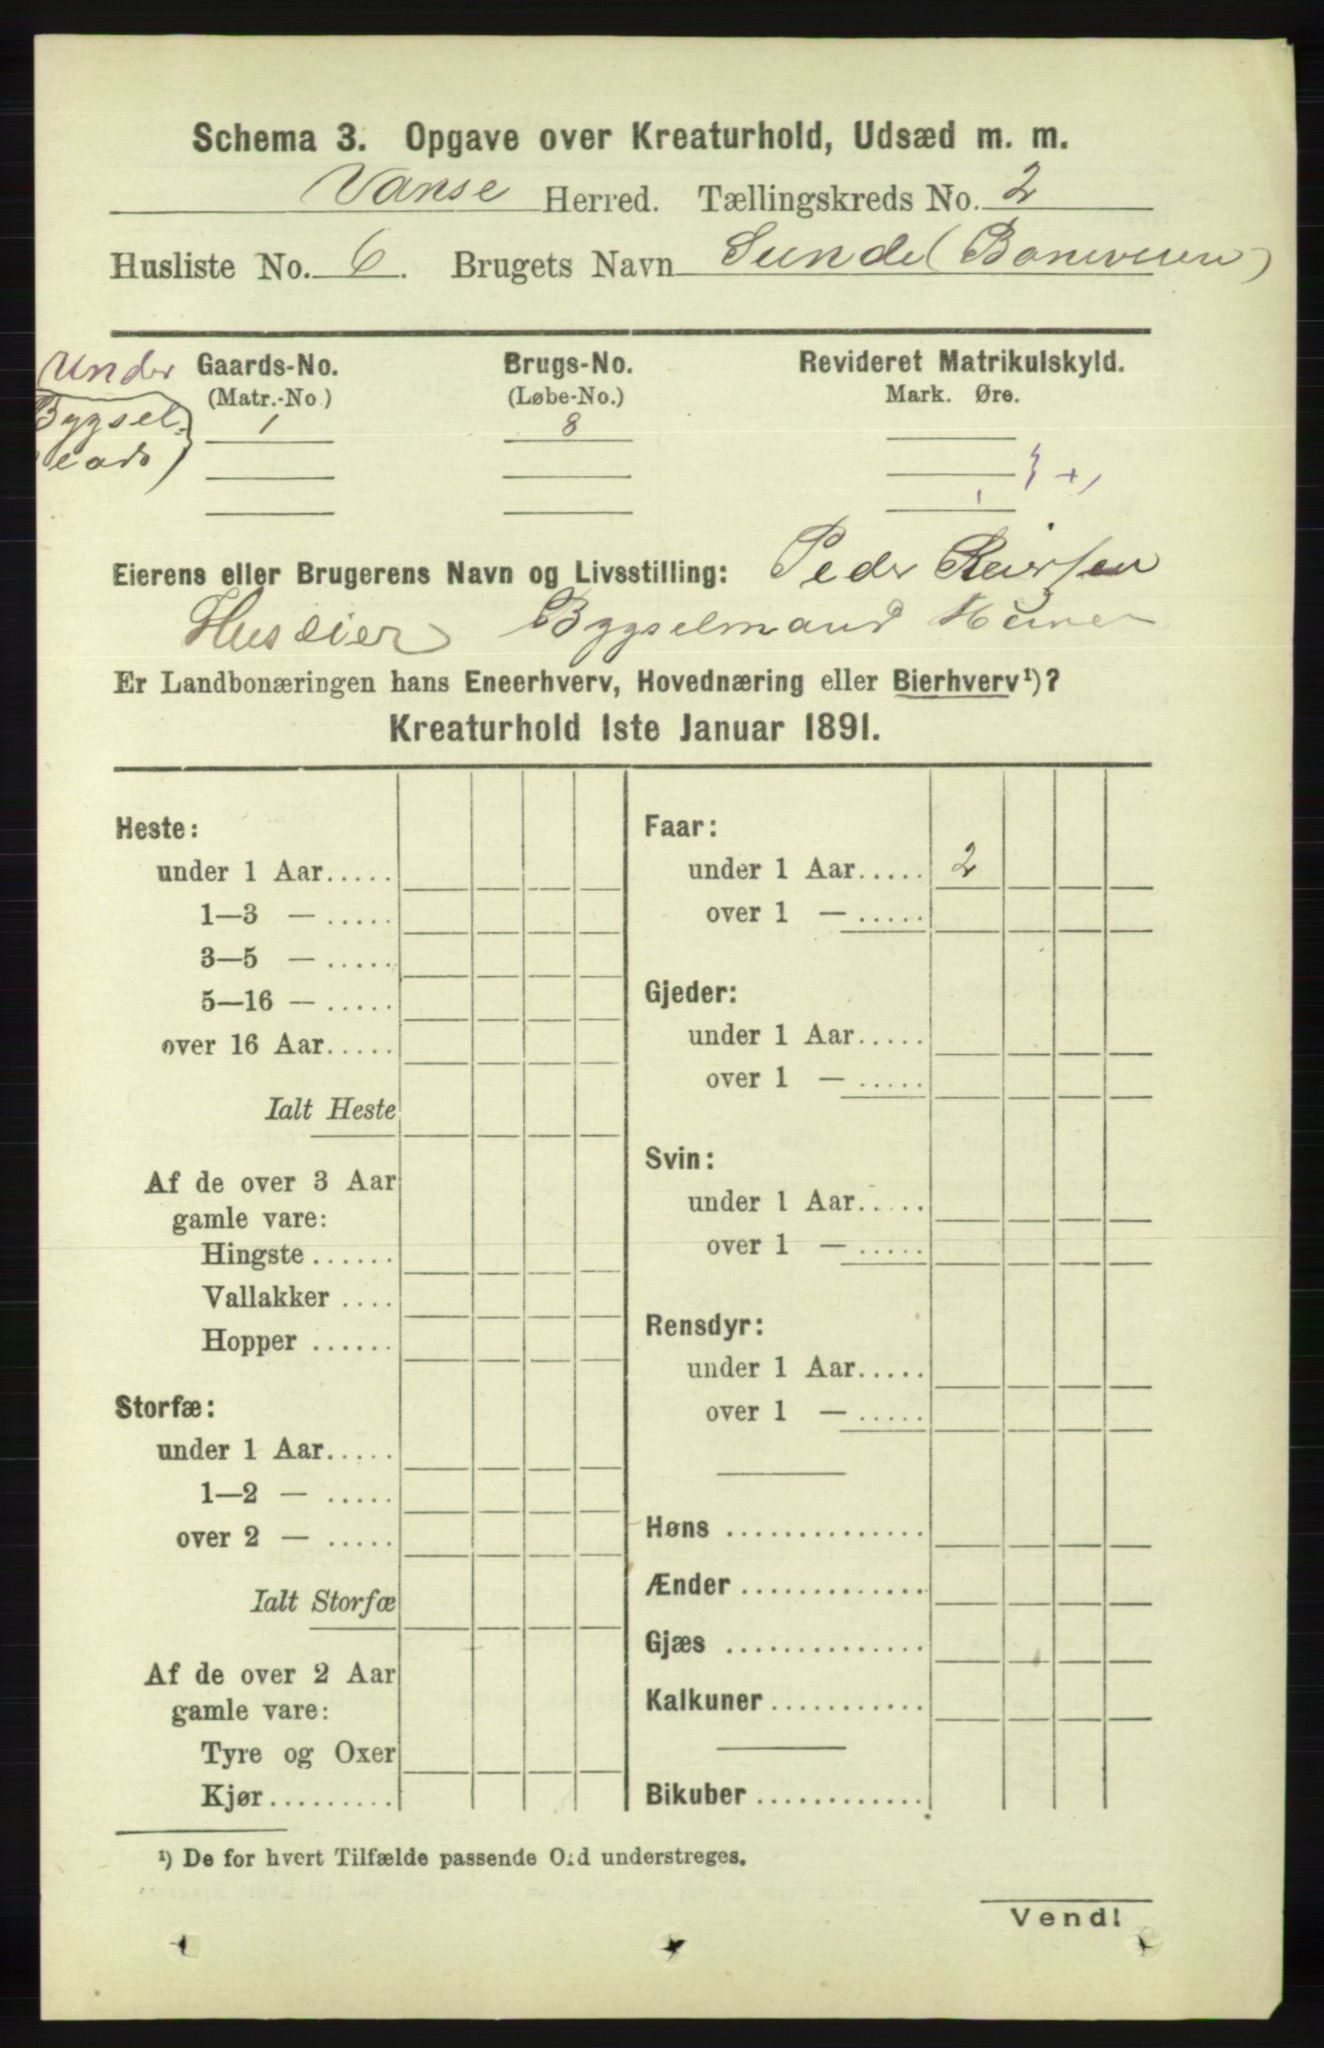 Schema 3. Opgave over Kreaturhold, Udsæd m. m.
Vanse Herred. Tællingskreds No. 2
Husliste No. 6. Brugets Navn Sunde (
Under
Bygsel-
Gaards-No. Brugs-No. Revideret Matrikulskyld.
(Matr.-No) (Løbe-No.) Mark. Øre.
1 8
Eierens eller Brugerens Navn og Livsstilling: Peder Reiersen
Huseier Bygselmand
Er Landbonæringen hans Eneerhverv, Hovednæring eller Bierhverv¹)?
Kreaturhold 1ste Januar 1891.
Heste:
under 1 Aar.....
1—3 — .....
3—5 — .....
5—16 — .....
over 16 Aar.....
Ialt Heste
Af de over 3 Aar
gamle vare:
Hingste ......
Vallakker ....
Hopper ......
Storfæ:
under 1 Aar.....
1—2 — .....
over 2 — .....
Ialt Storfæ
Af de over 2 Aar
gamle vare:
Tyre og Oxer
Kjør.........
Faar:
under 1 Aar..... 2
over 1 — .....
Gjeder:
under 1 Aar.....
over 1 — .....
Svin:
under 1 Aar.....
over 1 — .....
Rensdyr:
under 1 Aar.....
over 1 — .....
Høns ..............
Ænder .............
Gjæs ..............
Kalkuner ...........
Bikuber ............
¹) De for hvert Tilfælde passende Ord understreges.
Vend!